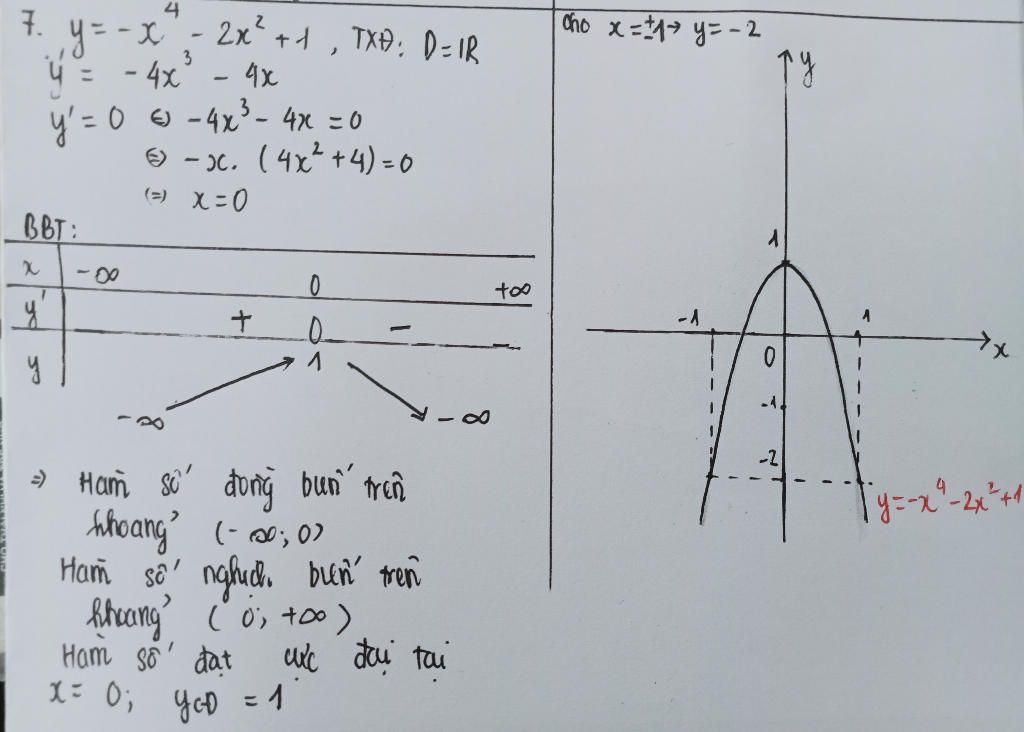 7. y = -x⁴ - 2x² + 1 , TXĐ: D = IR
y' = -4x³ - 4x
y' = 0 ⇔ -4x³ - 4x = 0
⇔ -x. (4x² + 4) = 0
(=) x = 0
BBT:
x -∞ 0 +∞
y' + 0 -
y 1
-∞ -∞
⇒ Hàm số đồng biến trên
khoảng (-∞; 0)
Hàm số nghịch biến trên
khoảng (0; +∞)
Hàm số đạt cực đại tại
x = 0; yCĐ = 1
cho x = ±1 → y = -2
y
1
-1 1
0 x
-1
-2
y = -x⁴ - 2x² + 1